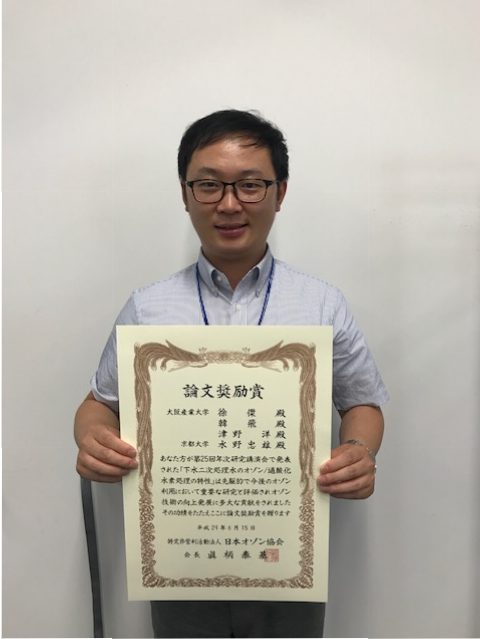 論文奨励賞
大阪産業大学 徐 傑 殿
韓 飛 殿
津野 洋 殿
京都大学 水野忠雄 殿
あなた方が第25回年次研究講演会で発表
された「下水二次処理水のオゾン/過酸化
水素処理の特性」は先駆的で今後のオゾン
利用において重要な研究と評価されオゾン
技術の向上発展に多大な貢献をされました
その功績をたたえここに論文奨励賞を贈ります
平成 24 年 6 月 15 日
特定非営利活動法人 日本オゾン協会
会長 眞柄泰基